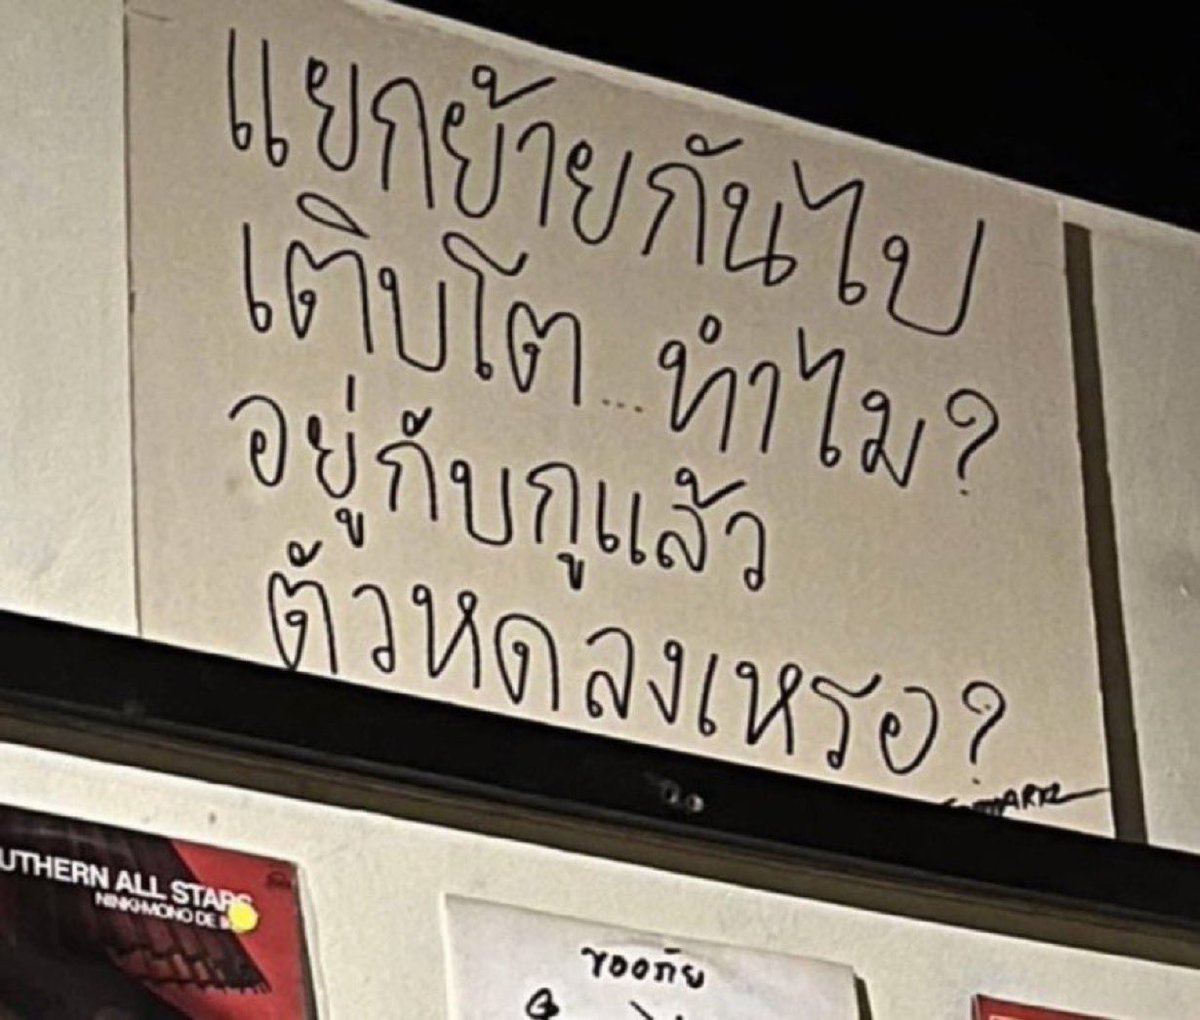 แยกย้ายกันไป
เติบโต...ทำไม?
อยู่กับกูแล้ว
ตัวหดลงเหรอ?
UTHERN ALL STARS
NINKI-MONO DE
ขออภัย